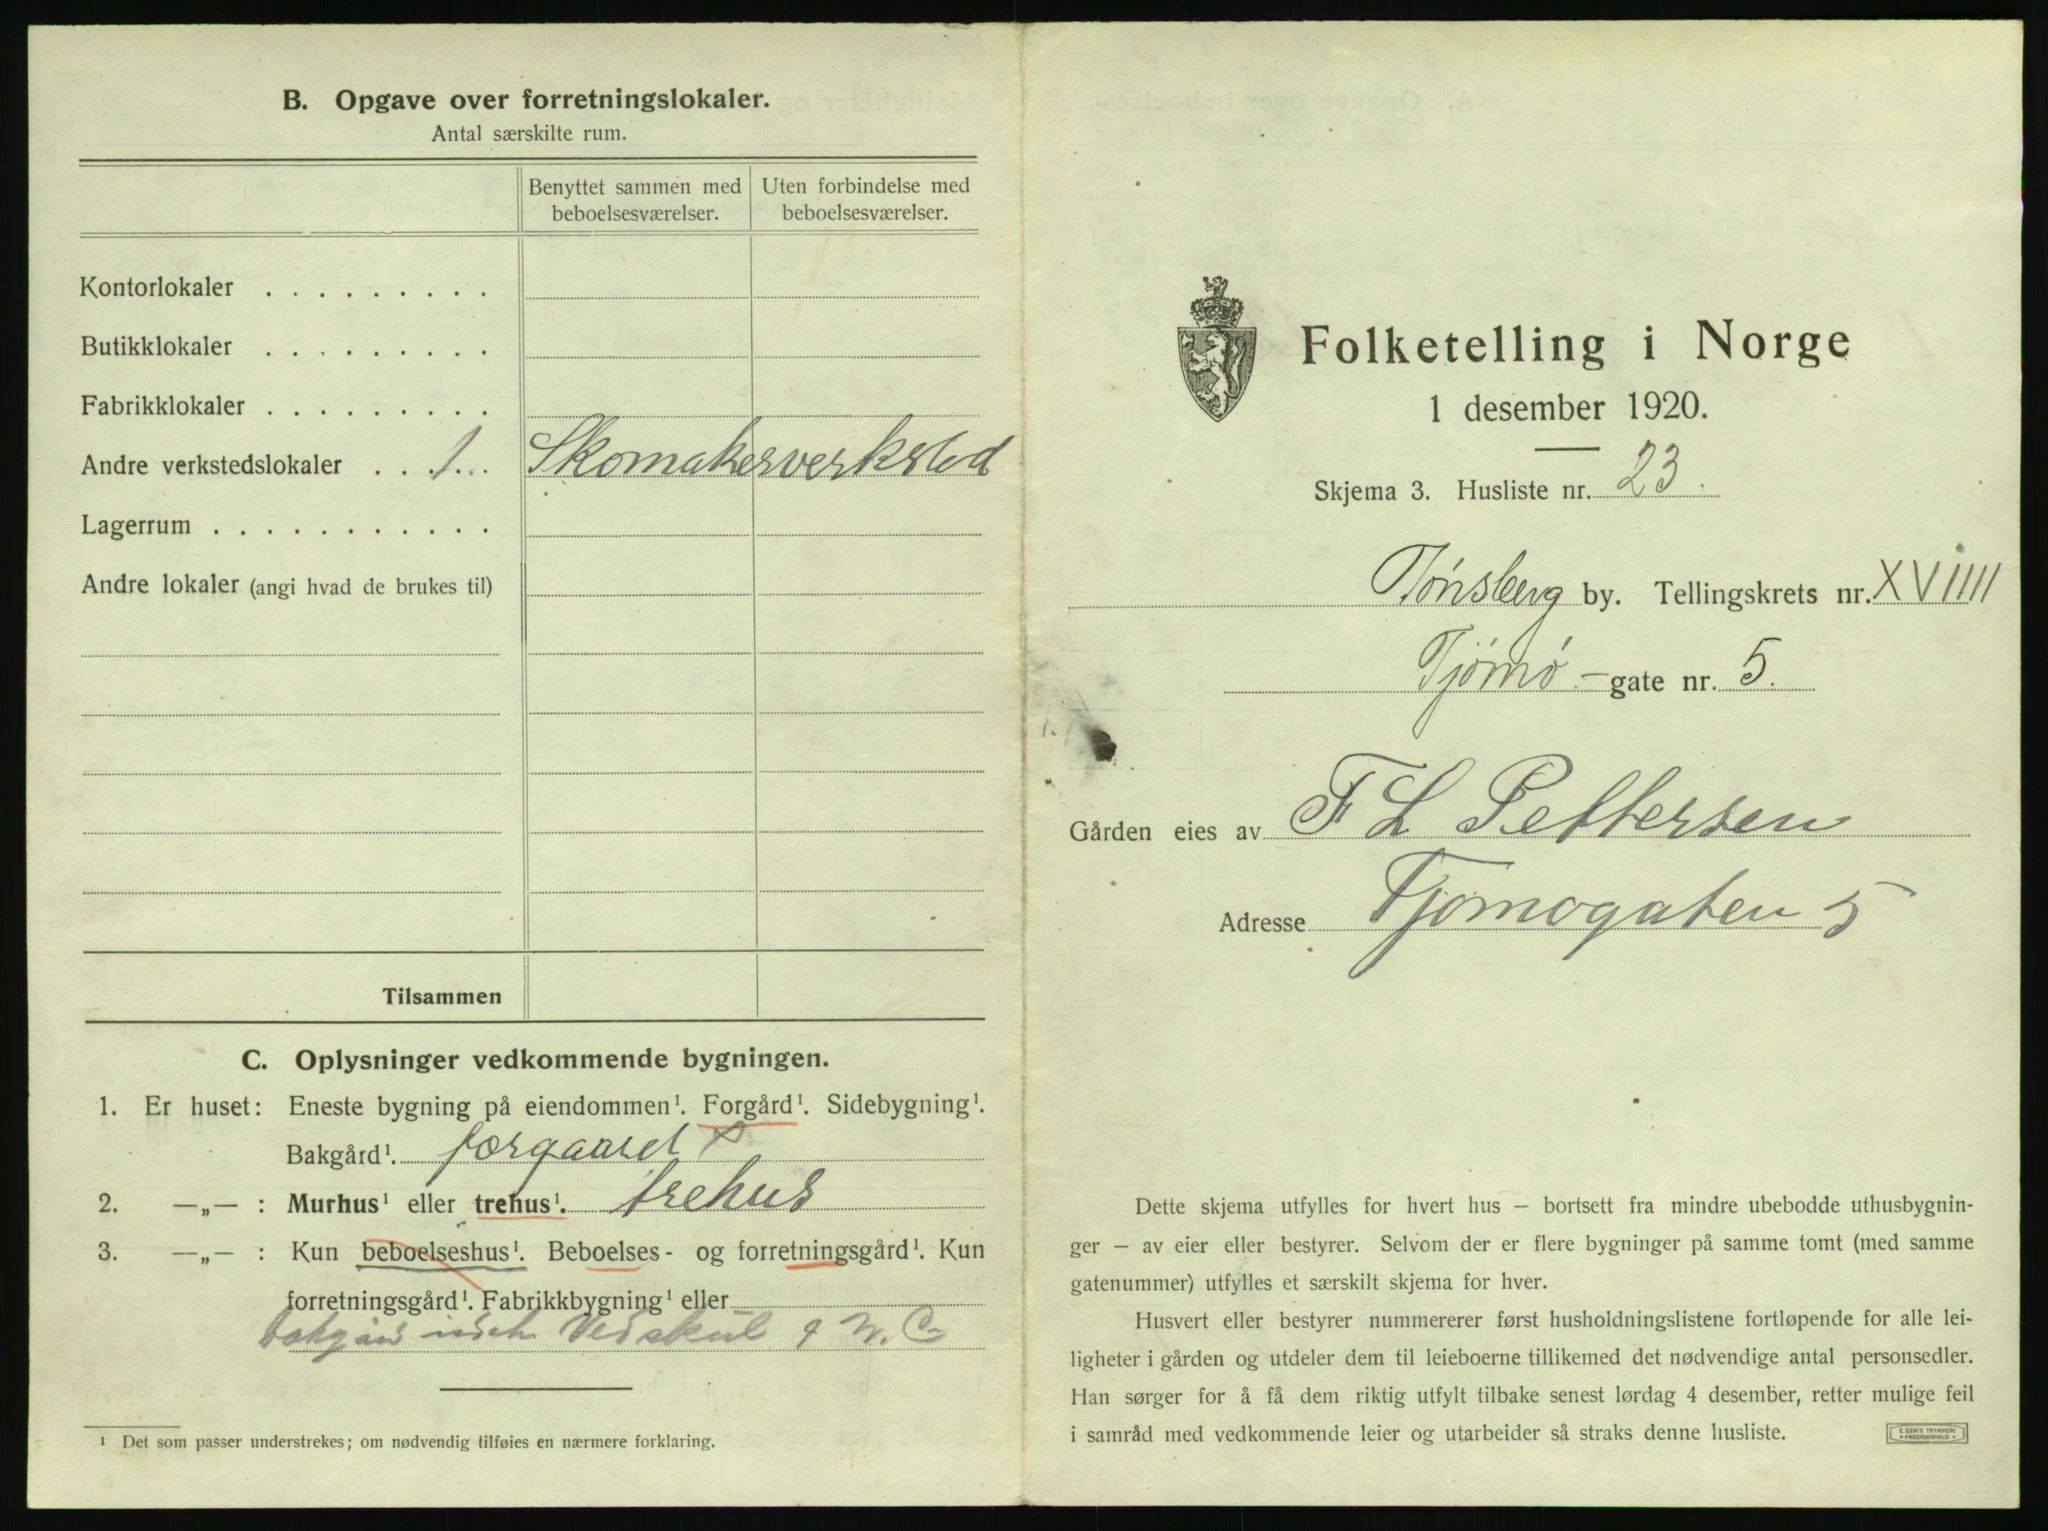 B. Opgave over forretningslokaler.
Antal særskilte rum.
Benyttet sammen med beboelsesværelser.
Uten forbindelse med beboelsesværelser.
Kontorlokaler . . . . . . . . .
Butikklokaler . . . . . . . . .
Fabrikklokaler . . . . . . . . .
Andre verkstedslokaler . . 1 . . Skomakerverksted
Lagerrum . . . . . . . . . . .
Andre lokaler (angi hvad de brukes til)
Tilsammen
C. Oplysninger vedkommende bygningen.
1. Er huset: Eneste bygning på eiendommen¹. Forgård¹. Sidebygning¹.
Bakgård¹. forgaard x
2. —„— : Murhus¹ eller trehus¹. trehus
3. —„— : Kun beboelseshus¹. Beboelses- og forretningsgård¹. Kun
forretningsgård¹. Fabrikkbygning¹ eller
Vedskul W.C.
¹ Det som passer understrekes; om nødvendig tilføies en nærmere forklaring.
Folketelling i Norge
1 desember 1920.
Skjema 3. Husliste nr. 23.
Tønsberg by. Tellingskrets nr. XVIIII
Tjømø-gate nr. 5.
Gården eies av F L Pettersen
Adresse Tjømøgaten 5
Dette skjema utfylles for hvert hus – bortsett fra mindre ubebodde uthusbygnin-
ger – av eier eller bestyrer. Selvom der er flere bygninger på samme tomt (med samme
gatenummer) utfylles et særskilt skjema for hver.
Husvert eller bestyrer nummererer først husholdningslistene fortløpende for alle lei-
ligheter i gården og utdeler dem til leieboerne tillikemed det nødvendige antal personsedler.
Han sørger for å få dem riktig utfylt tilbake senest lørdag 4 desember, retter mulige feil
i samråd med vedkommende leier og utarbeider så straks denne husliste.
E. SEM'S TRYKKERI
FREDRIKSHALD